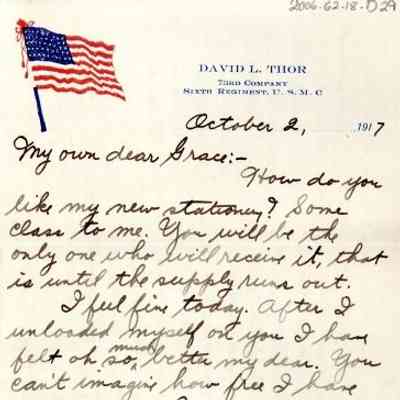 2006-62-18-D2A
DAVID L. THOR
73RD COMPANY
SIXTH REGIMENT, U. S. M. C
October 2, 1917
My own dear Grace:-
How do you
like my new stationery? Some
class to me. You will be the
only one who will receive it, that
is until the supply runs out.
I feel fine today. After I
unloaded myself on you I have
felt oh so, much better my dear. You
can't imagine how free I have